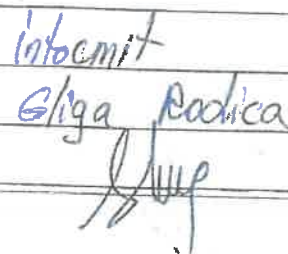 Intocmit
Gliga Rodica